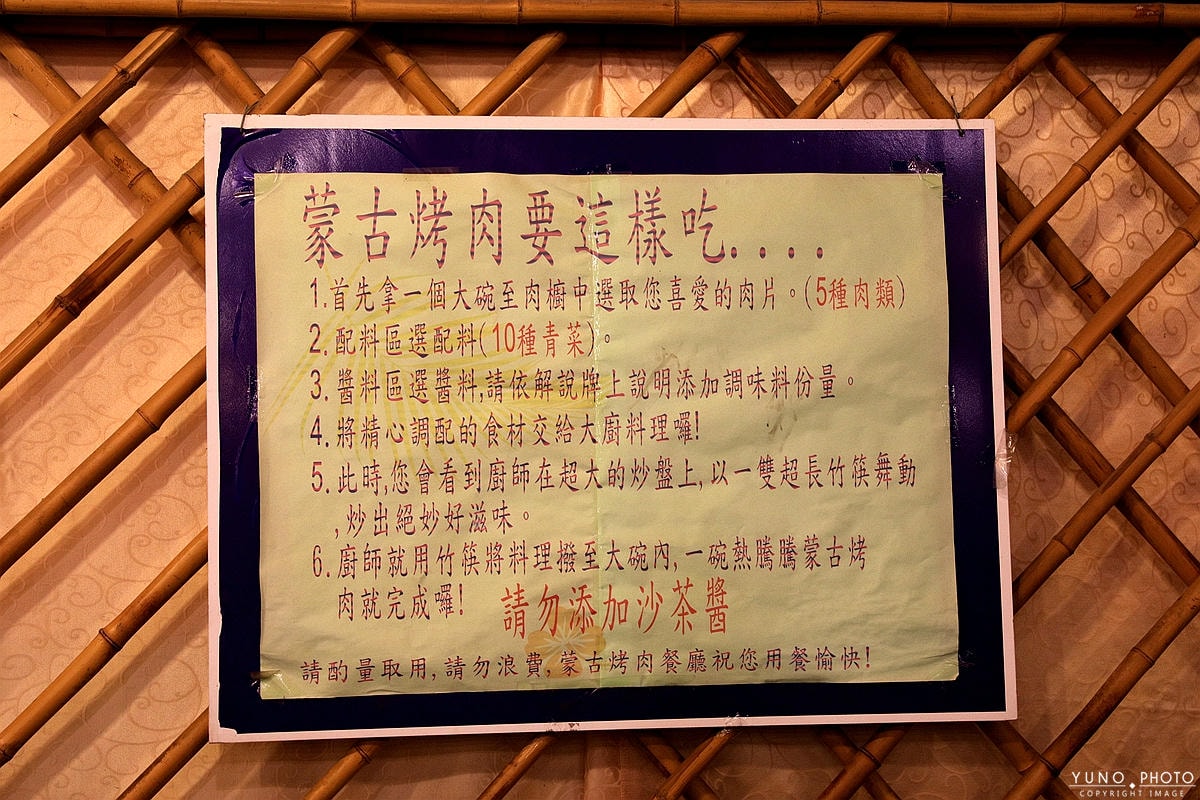 蒙古烤肉要這樣吃....
1.首先拿一個大碗至肉櫥中選取您喜愛的肉片。(5種肉類)
2.配料區選配料(10種青菜)。
3.醬料區選醬料,請依解說牌上說明添加調味料份量。
4.將精心調配的食材交給大廚料理囉!
5.此時,您會看到廚師在超大的炒盤上,以一雙超長竹筷舞動
,炒出絕妙好滋味。
6.廚師就用竹筷將料理撥至大碗內,一碗熱騰騰蒙古烤
肉就完成囉!
請勿添加沙茶醬
請酌量取用,請勿浪費,蒙古烤肉餐廳祝您用餐愉快!
YUNO PHOTO
COPYRIGHT IMAGE